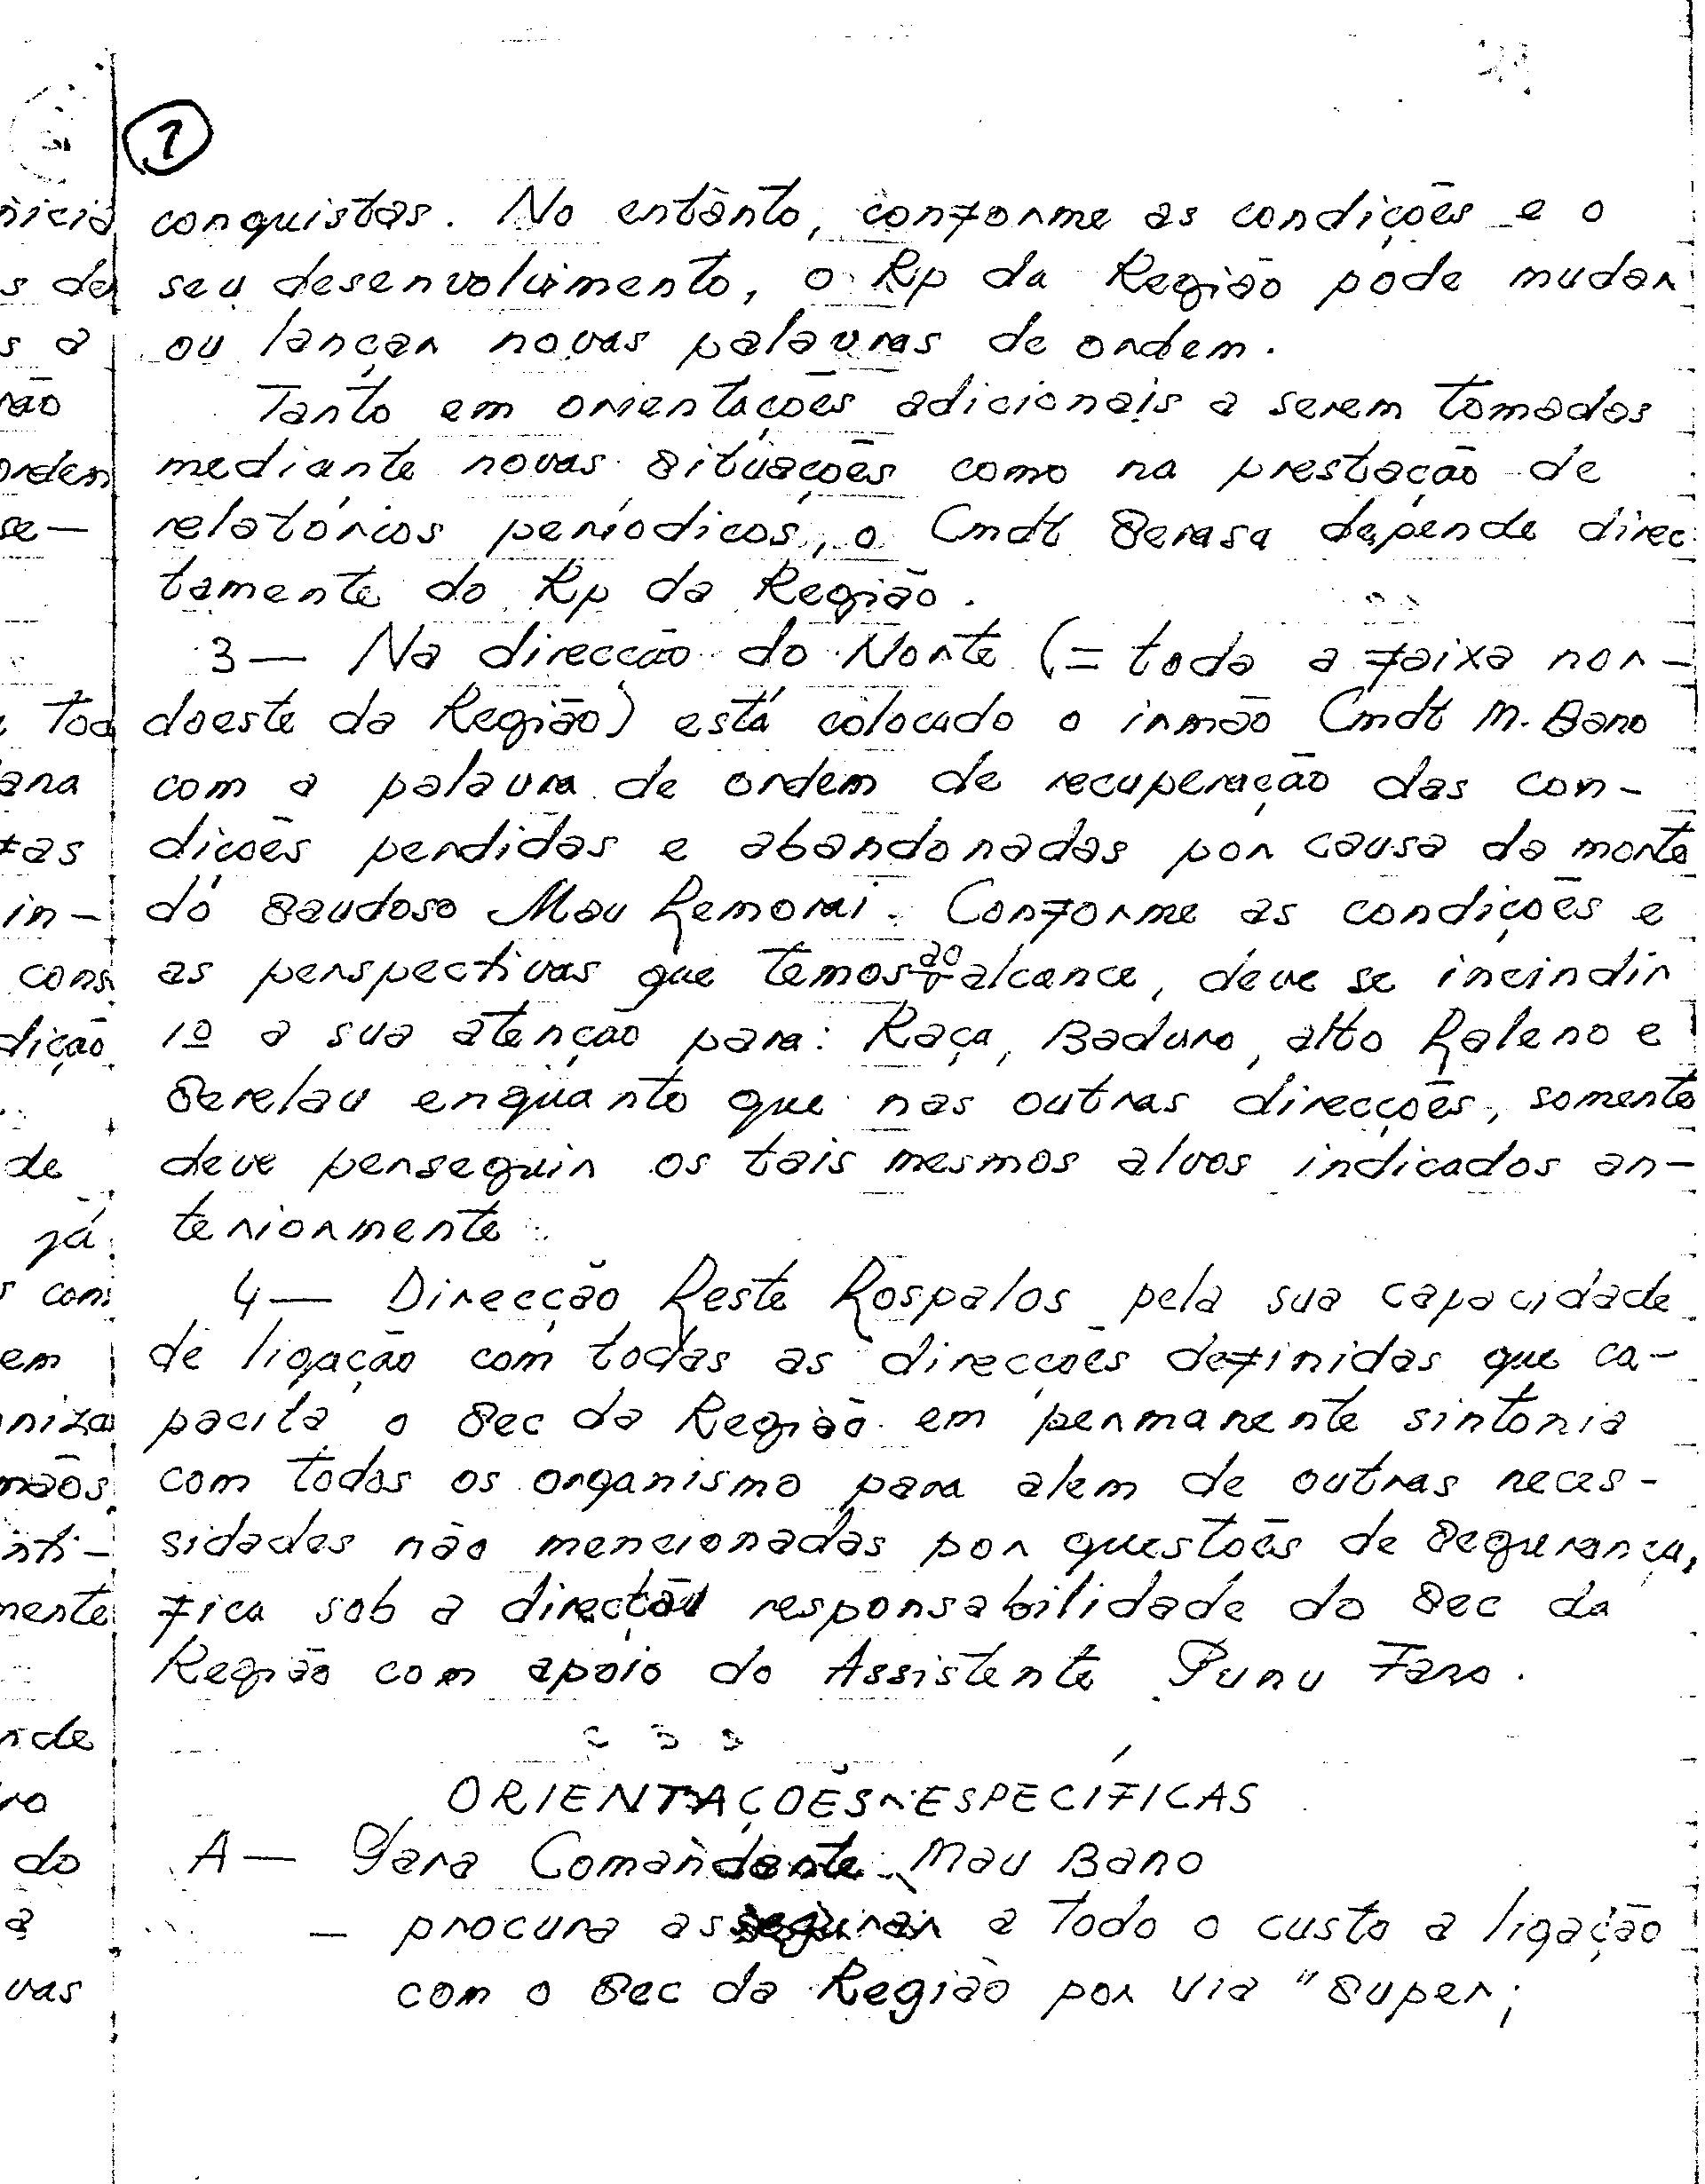 1
conquistas. No entànto, conforme as condições e o
seu desenvolvimento, o Rp da Região pode mudar
ou lançar novas palavras de ordem.
Tanto em orientações adicionais a serem tomadas
mediante novas situações como na prestação de
relatórios periodicos, o Cmdt Serasa depende direc
tamente do Rp da Região.
3 — Na direcção do Norte (= toda a faixa nor-
doeste da Região) está colocado o irmão Cmdt M. Bano
com a palavra de ordem de recuperação das con-
dições perdidas e abandonadas por causa da morte
do saudoso Mau Lemorai. Conforme as condições e
as perspectivas que temos ao alcance, deve se incindir
1º a sua atenção para: Raça, Baduro, alto Laleno e
Serelau enquanto que nas outras direcções, somente
deve perseguir os tais mesmos alvos indicados an-
teriormente.
4 — Direcção Leste Lospalos pela sua capacidade
de ligação com todas as direcções definidas que ca-
pacita o Sec da Região em permanente sintonia
com todos os organismo para alem de outras neces-
sidades não mencionadas por questões de segurança,
fica sob a directa responsabilidade do Sec da
Região com apoio do Assistente Punu Fano.
ORIENTAÇOẼS ESPECÍFICAS
A — Para Comandante Mau Bano
— procura assegurar a todo o custo a ligação
com o Sec da Região por via "super;
nicia
s de
s a
rão
ordem
se-
Tod
ana
fas
in-
cons
dição
de
já
s con
em
niza
mãos
nti-
mente
nde
ro
do
a
vas